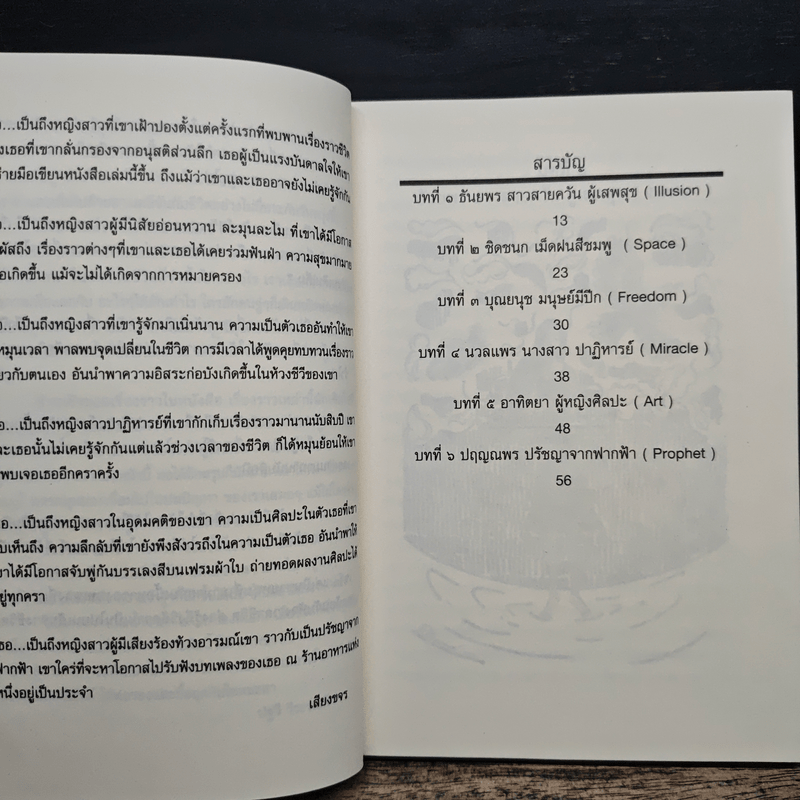 ...เป็นถึงหญิงสาวที่เขาเฝ้าปองตั้งแต่ครั้งแรกที่พบพานเรื่องราวชีวิต
เธอที่เขากลั่นกรองจากอนุสติส่วนลึก เธอผู้เป็นแรงบันดาลใจให้เขา
มือเขียนหนังสือเล่มนี้ขึ้น ถึงแม้ว่าเขาและเธออาจยังไม่เคยรู้จักกัน
...เป็นถึงหญิงสาวผู้มีนิสัยอ่อนหวาน ละมุนละไม ที่เขาได้มีโอกาส
ผัสถึง เรื่องราวต่างๆที่เขาและเธอได้เคยร่วมฟันฝ่า ความสุขมากมาย
เกิดขึ้น แม้จะไม่ได้เกิดจากการหมายครอง
...เป็นถึงหญิงสาวที่เขารู้จักมาเนิ่นนาน ความเป็นตัวเธออันทำให้เขา
หมุนเวลา พาลพบจุดเปลี่ยนในชีวิต การมีเวลาได้พูดคุยทบทวนเรื่องราว
กับตนเอง อันนำพาความอิสระก่อบังเกิดขึ้นในห้วงชีวีของเขา
...เป็นถึงหญิงสาวปาฏิหารย์ที่เขากักเก็บเรื่องราวมานานนับสิบปี เขา
เธอนั้นไม่เคยรู้จักกันแต่แล้วช่วงเวลาของชีวิต ก็ได้หมุนย้อนให้เขา
พบเจอเธออีกคราครั้ง
...เป็นถึงหญิงสาวในอุดมคติของเขา ความเป็นศิลปะในตัวเธอที่เขา
เห็นถึง ความลึกลับที่เขายังพึงสังวรถึงในความเป็นตัวเธอ อันนำพาให้
ได้มีโอกาสจับพู่กันบรรเลงสีบนเฟรมผ้าใบ ถ่ายทอดผลงานศิลปะได้
ทุกครา
...เป็นถึงหญิงสาวผู้มีเสียงร้องท้วงอารมณ์เขา ราวกับเป็นปรัชญาจาก
ฟากฟ้า เขาใคร่ที่จะหาโอกาสไปรับฟังบทเพลงของเธอ ณ ร้านอาหารแห่ง
หนึ่งอยู่เป็นประจำ
เสียงขจร
สารบัญ
บทที่ ๑ ธันยพร สาวสายควัน ผู้เสพสุข ( Illusion )
13
บทที่ ๒ ชิดชนก เม็ดฝนสีชมพู ( Space )
23
บทที่ ๓ บุณยนุช มนุษย์มีปีก ( Freedom )
30
บทที่ ๔ นวลแพร นางสาว ปาฏิหารย์ ( Miracle )
38
บทที่ ๕ อาทิตยา ผู้หญิงศิลปะ ( Art )
48
บทที่ ๖ ปฤญณพร ปรัชญาจากฟากฟ้า ( Prophet )
56